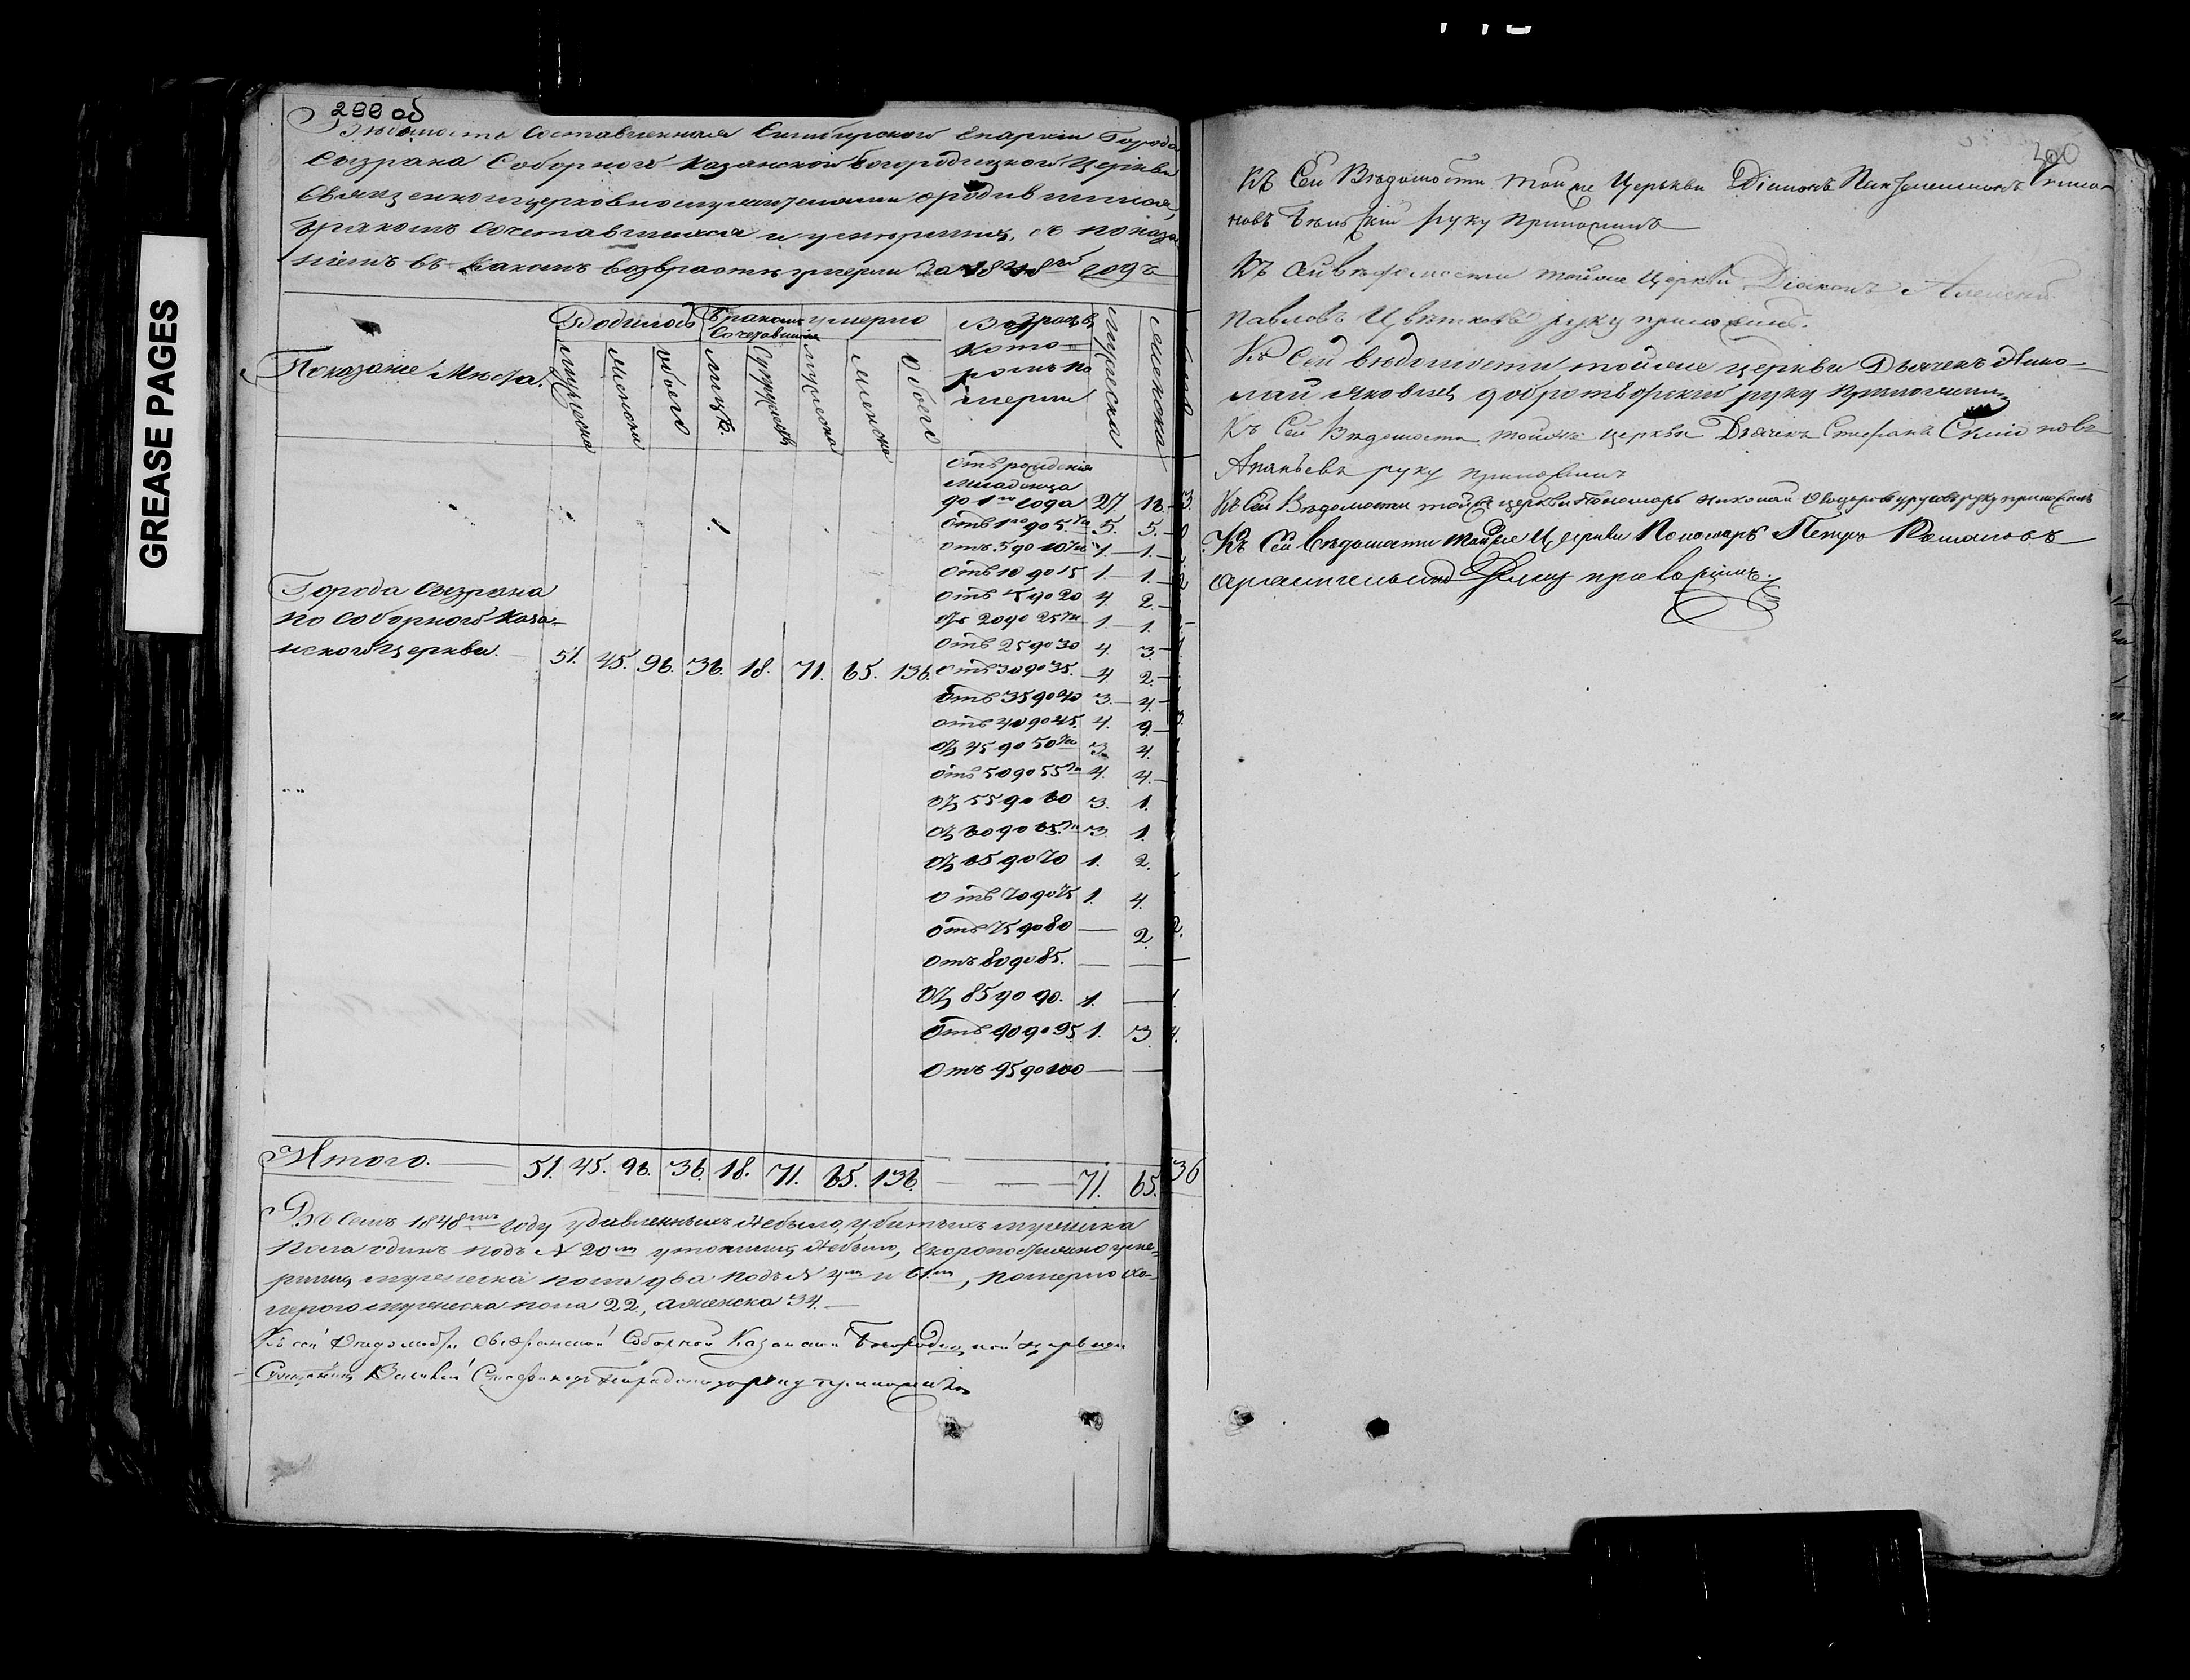 299 об
Вѣдомость Составленная Симбирской Епархіи Города
Сызрана Соборной Казанской Богородицкой Церкви
Священноицерковнослужителями ородившихся,
Бракомъ Сочетавшихся и умершихъ, съ показа
ніемъ въ какомъ возврастѣ умерли За 1848й годъ
Показаніе Мѣста.
Родилось
Бракомъ Сочетавшихся
умерло
Возрастъ в которомъ померли
мужеска
женска
мужеска
женска
обоего
Лицъ.
Супружествъ
мужеска
женска
Обоего
Отъ рожденія
младенца
до 1го года 27. 18. 
Отъ 1го до 5ти 5. 5.
Отъ 5 до 10ти 1 1.
Отъ 10 до 15 1 1.
Отъ 15 до 20 4. 2.
Отъ 20 до 25ти 1 1.
Отъ 25 до 30 4. 3.
Города Сызрана
по Соборной Каза-
нской церкви. 51. 45. 96. 36. 18. 71. 65. 136. Отъ 30 до 35. 4 2.
Отъ 35 до 40 3. 4.
Отъ 40 до 45. 4. 9.
Отъ 45 до 50ти 3. 4.
Отъ 50 до 55ти 4. 4.
Отъ 55 до 60 3. 1.
Отъ 60 до 65.ти 3. 1.
Отъ 65 до 70 1. 2.
Отъ 70 до 75 1. 4.
Отъ 75 до 80 — 2.
Отъ 80 до 85. — —
Отъ 85 до 90. 1. —
Отъ 90 до 95 1. 3.
Отъ 95 до 100 — —
Итого. — 51. 45. 96. 36. 18. 71. 65. 136. — — 71. 65. 36
Въ семъ 1848мъ году удавленныхъ Небыло, убитыхъ мужеска
Пола одинъ подъ N 20м утопшихъ Небыло, Скоропостижно уме-
ршихъ мужеска пола два подъ N 4м и 61м, померло
мужеска пола 22, аженска 34.
Къ сей Вѣдомости Сызранской Соборной Казанской Богородицкой церкви
Священникъ Василий руку приложилъ
300
Къ Сей Вѣдомости тойже Церькви Діаконъ Пантелеимонъ
новъ Бѣльскій руку приложилъ
Къ сей вѣдомости тойже Церкви Діаконъ Алексей
Павловъ Цвѣтковъ руку приложилъ.
Къ Сей вѣдомости тойже церкви Дьячекъ Нико-
лай Яковлевъ добротворский руку приложилъ
Къ Сей Вѣдомости тойже церкви Дьячекъ Стефанъ
Ананьевъ руку приложилъ
Къ Сей Вѣдомости тойже церкви Пономарь Николай руку приложилъ
Къ Сей Вѣдомости тойже Церкви Пономарь Петръ Романовъ
Архангельский руку приложилъ.
GREASE PAGES